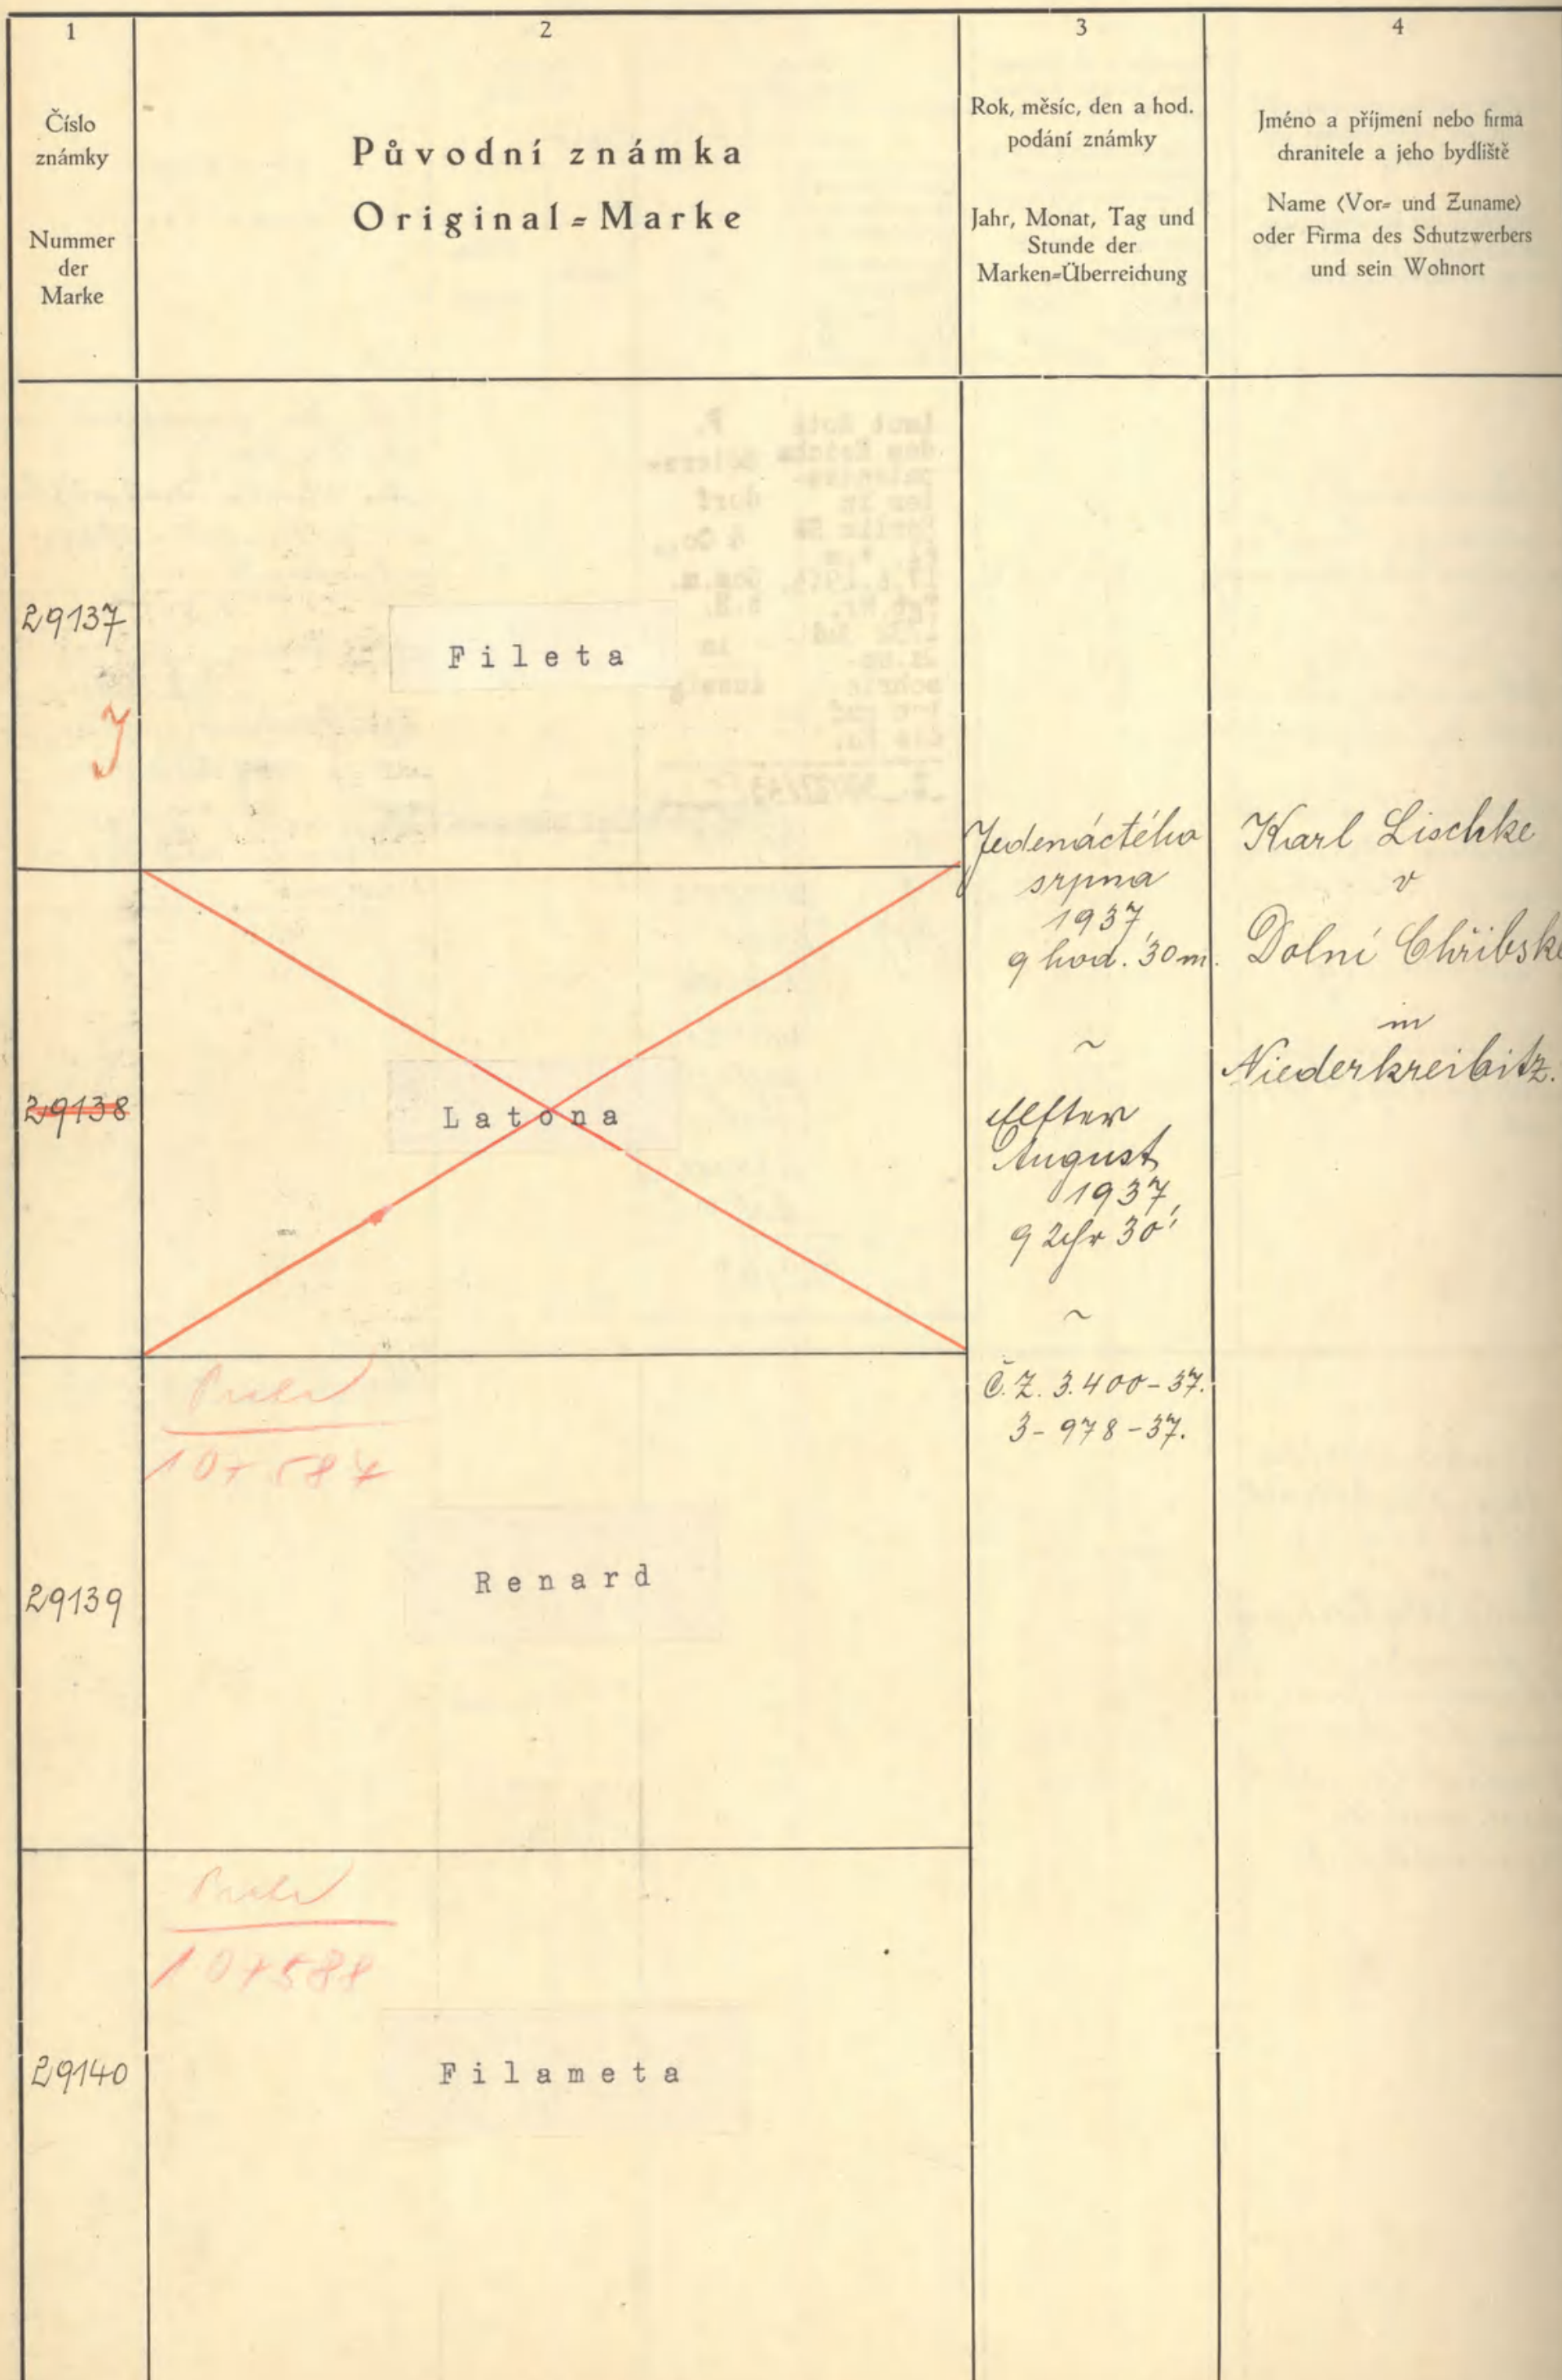 1
Číslo
známky
Nummer
der
Marke
2
Původní známka
Original=Marke
3
Rok, měsíc, den a hod.
podání známky
Jahr, Monat, Tag und
Stunde der
Marken=Überreichung
4
Jméno a příjmení nebo firma
chranitele a jeho bydliště
Name (Vor= und Zuname)
oder Firma des Schutzwerbers
und sein Wohnort
29137
Fileta
Jedenáctého
srpna
1937,
9 hod. 30 m.
~
Elfter
August
1937,
9 Uhr 30'
~
Č.Z. 3.400-37.
3-978-37.
Karl Lischke
v
Dolní Chřibské
in
Niederkreibitz.
29138
Latona
29139
107587
Renard
29140
107588
Filameta